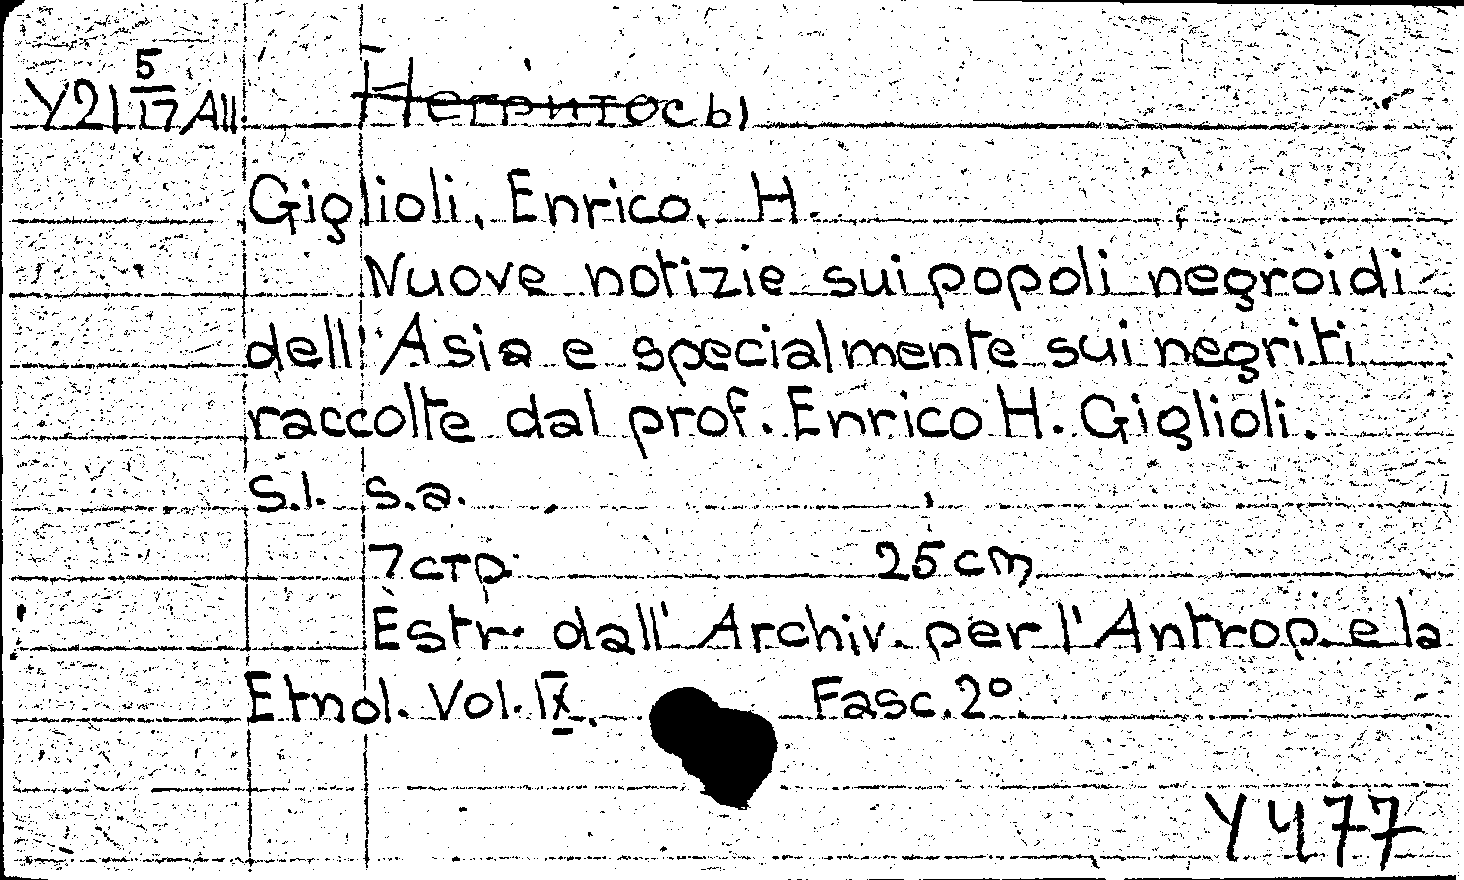 Y21 5/17 All Негритосы
Giglioli, Enrico, H.
Nuove notizie sui popoli negroidi
dell'Asia e specialmente sui negriti
raccolte dal prof. Enrico H. Giglioli.
S.l. s.a.
7 стр. 25 cm
Estr. dall' Archiv. per l'Antrop. e la
Etnol. Vol. IX. Fasc. 2º.
Y 477